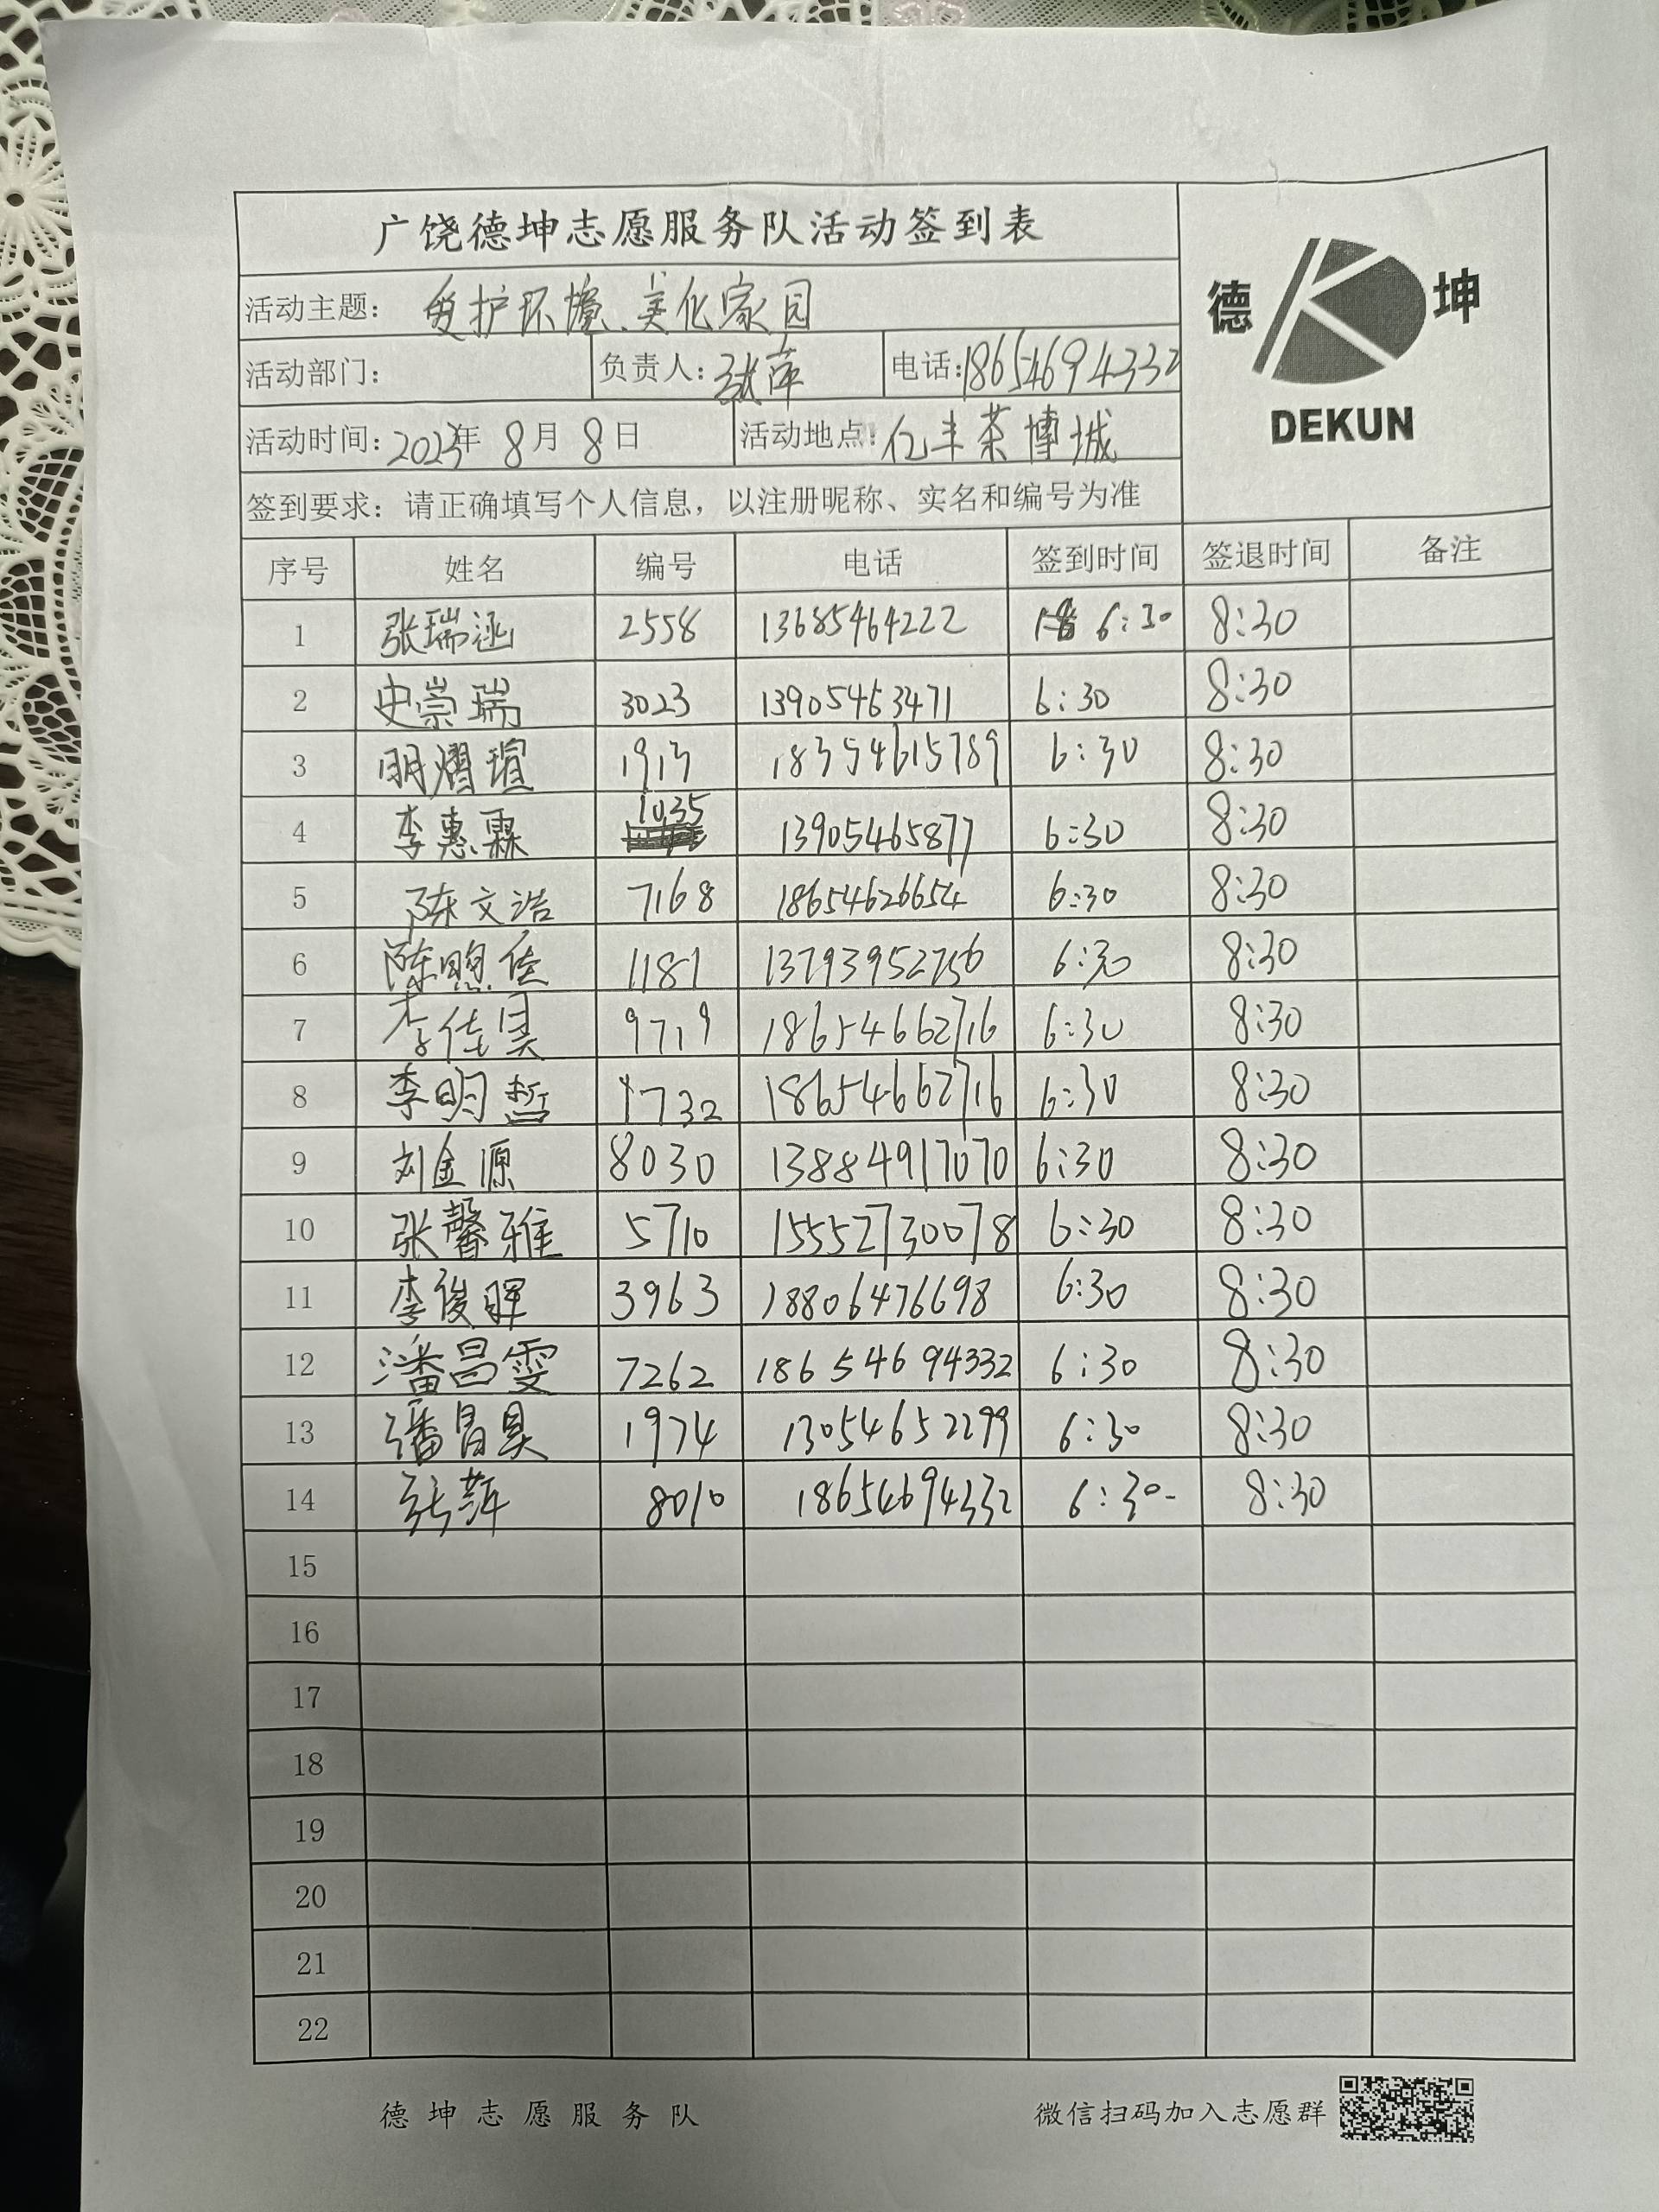 广饶德坤志愿服务队活动签到表
德 坤
DEKUN
活动主题: 爱护环境、美化家园
活动部门: 负责人: 张萍 电话: 18654694332
活动时间: 2023年 8月 8日 活动地点: 亿丰茶博城
签到要求: 请正确填写个人信息, 以注册昵称、实名和编号为准
序号 姓名 编号 电话 签到时间 签退时间 备注
1 张瑞涵 2558 13685464222 6:30 8:30
2 史崇瑞 3023 13905463471 6:30 8:30
3 明熠瑄 1913 18354615789 6:30 8:30
4 李惠霖 1035 13905465877 6:30 8:30
5 陈文浩 7168 18654626654 6:30 8:30
6 陈照佳 1181 13793952756 6:30 8:30
7 李佳昊 9719 18654662716 6:30 8:30
8 李明哲 1732 18654662716 6:30 8:30
9 刘金源 8030 13884917070 6:30 8:30
10 张馨雅 5710 15552730078 6:30 8:30
11 李俊晖 3963 18806476698 6:30 8:30
12 潘昌雯 7262 18654694332 6:30 8:30
13 潘昌昊 1974 13054652299 6:30 8:30
14 张萍 8010 18654694332 6:30 8:30
15
16
17
18
19
20
21
22
德坤志愿服务队 微信扫码加入志愿群